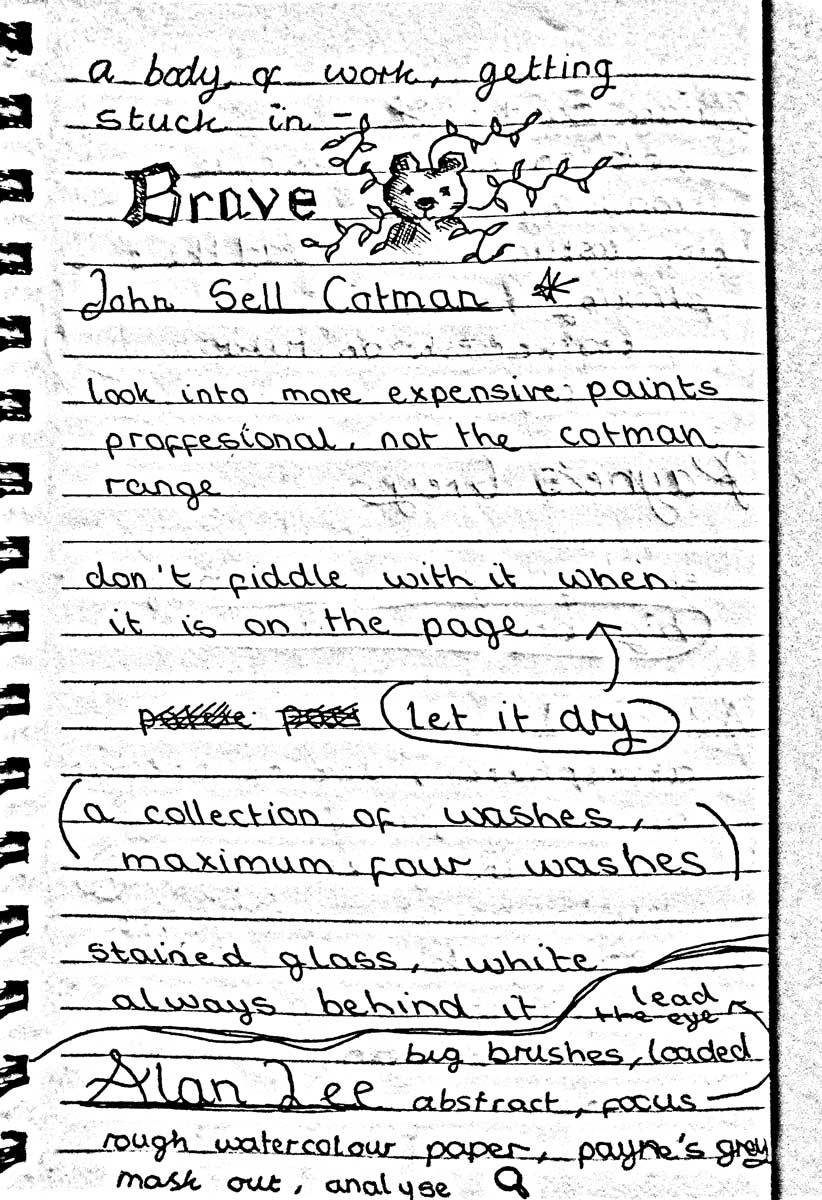 a body of work, getting
stuck in -
Brave
John Sell Cotman
look into more expensive paints
proffesional, not the cotman
range
don't fiddle with it when
it is on the page
let it dry
(a collection of washes,
maximum four washes)
stained glass, white
always behind it
lead
the eye
big brushes, loaded
Alan Lee abstract, focus
rough watercolour paper, payne's grey
mask out, analyse